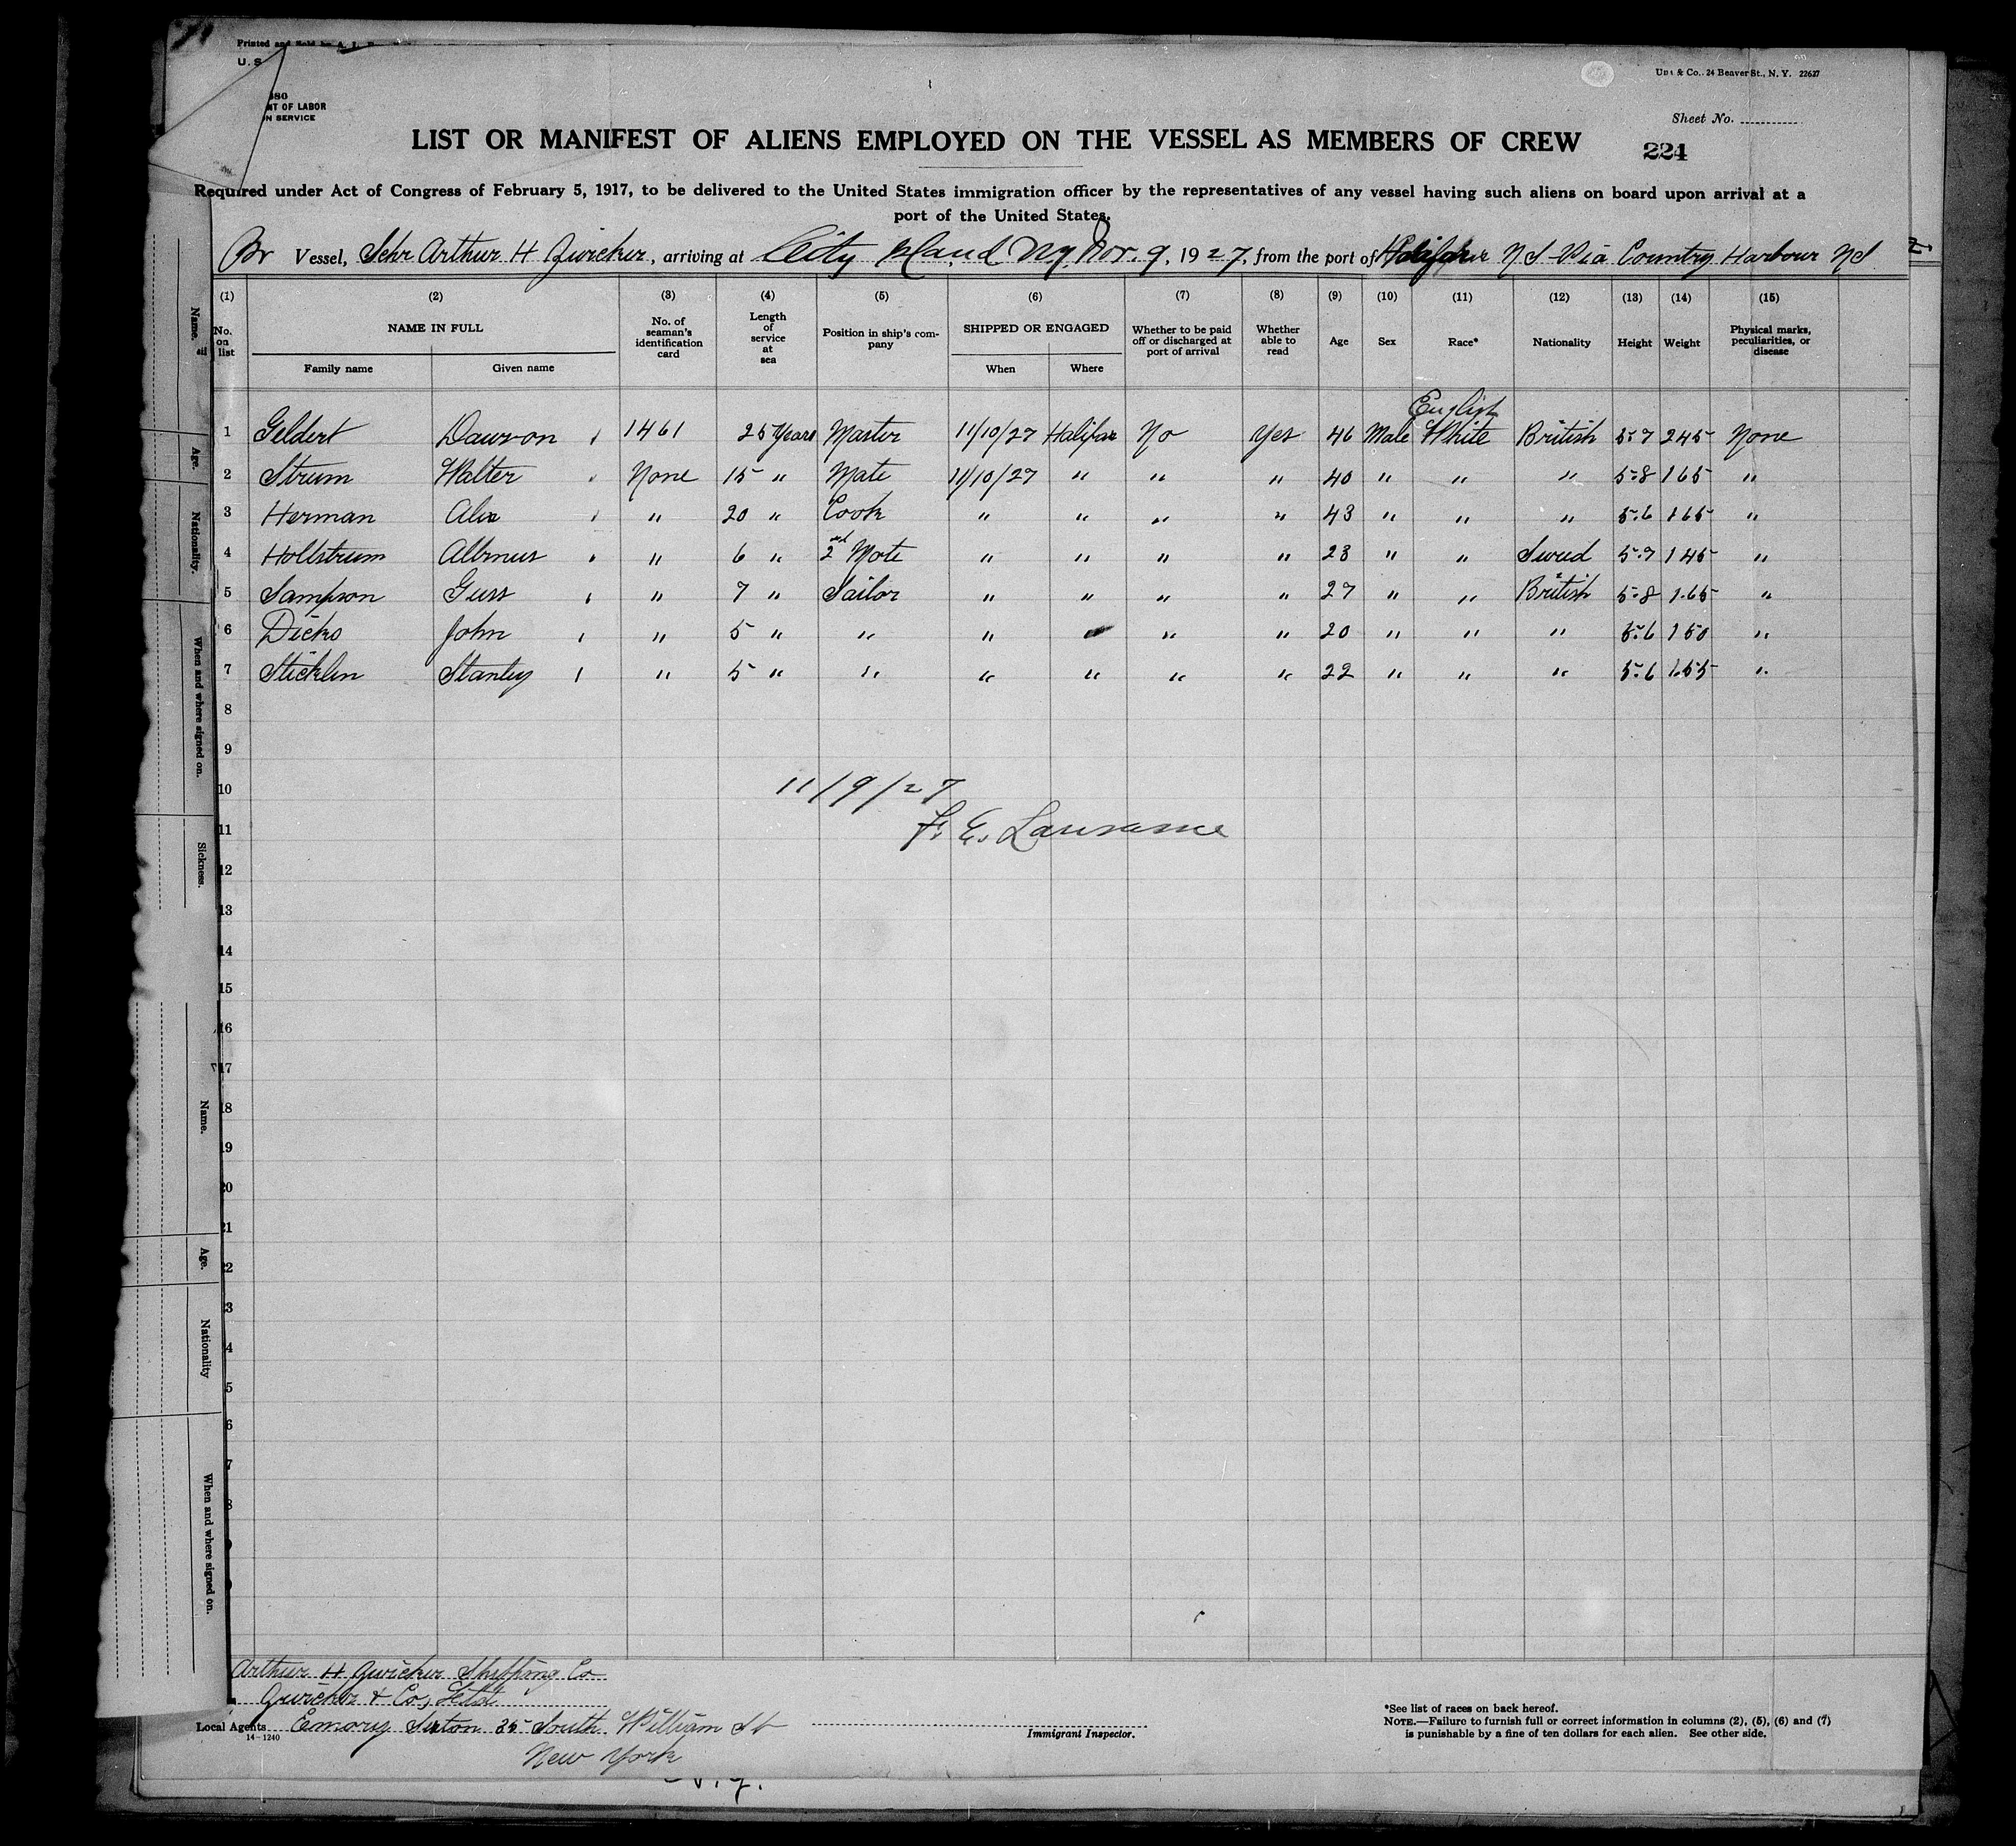 Printed and Sold by A. L.
U. S.
Uns & Co., 24 Beaver St., N. Y. 22627
680
NT OF LABOR
N SERVICE
Sheet No.
LIST OR MANIFEST OF ALIENS EMPLOYED ON THE VESSEL AS MEMBERS OF CREW
224
Required under Act of Congress of February 5, 1917, to be delivered to the United States immigration officer by the representatives of any vessel having such aliens on board upon arrival at a
port of the United States.
Br Vessel, Schr Arthur H Zwicker, arriving at City Island N.Y. Nov. 9, 1927, from the port of Halifax N S Via Country Harbour N S
(1) (2) (3) (4) (5) (6) (7) (8) (9) (10) (11) (12) (13) (14) (15)
No. on list NAME IN FULL No. of seaman's identification card Length of service at sea Position in ship's company SHIPPED OR ENGAGED Whether to be paid off or discharged at port of arrival Whether able to read Age Sex Race* Nationality Height Weight Physical marks, peculiarities, or disease
Family name Given name When Where
English
1 Geldert Dawson 1461 25 Years Master 11/10/27 Halifax No Yes 46 Male White British 5.7 245 None
2 Strum Walter None 15 " Mate 11/10/27 " " " 40 " " " 5.8 165 "
3 Herman Alex " 20 " Cook " " " " 43 " " " 5.6 165 "
4 Hollstrum " 6 " 2nd Mate " " " " 23 " " Swed 5.7 145 "
5 Sampson Guss " 7 " Sailor " " " " 27 " " British 5.8 165 "
6 Dicks John " 5 " " " " " 20 " " " 5.6 150 "
7 Sticklen Stanley " 5 " " " " " " 22 " " " 5.6 155 "
8
9
10
11/9/27
11
F. E. Lawrence
12
13
14
15
16
17
18
19
20
21
22
3
4
5
6
7
8
Name.
Age.
Nationality.
When and where signed on.
Sickness.
Name.
Age.
Nationality
When and where signed on.
Arthur H Zwicker Shipping Co
Zwicker & Co, Ltd
Local Agents Emory Sexton 25 South William St
New York
14-1240
Immigrant Inspector.
*See list of races on back hereof.
NOTE.—Failure to furnish full or correct information in columns (2), (5), (6) and (7)
is punishable by a fine of ten dollars for each alien. See other side.
N.Y.